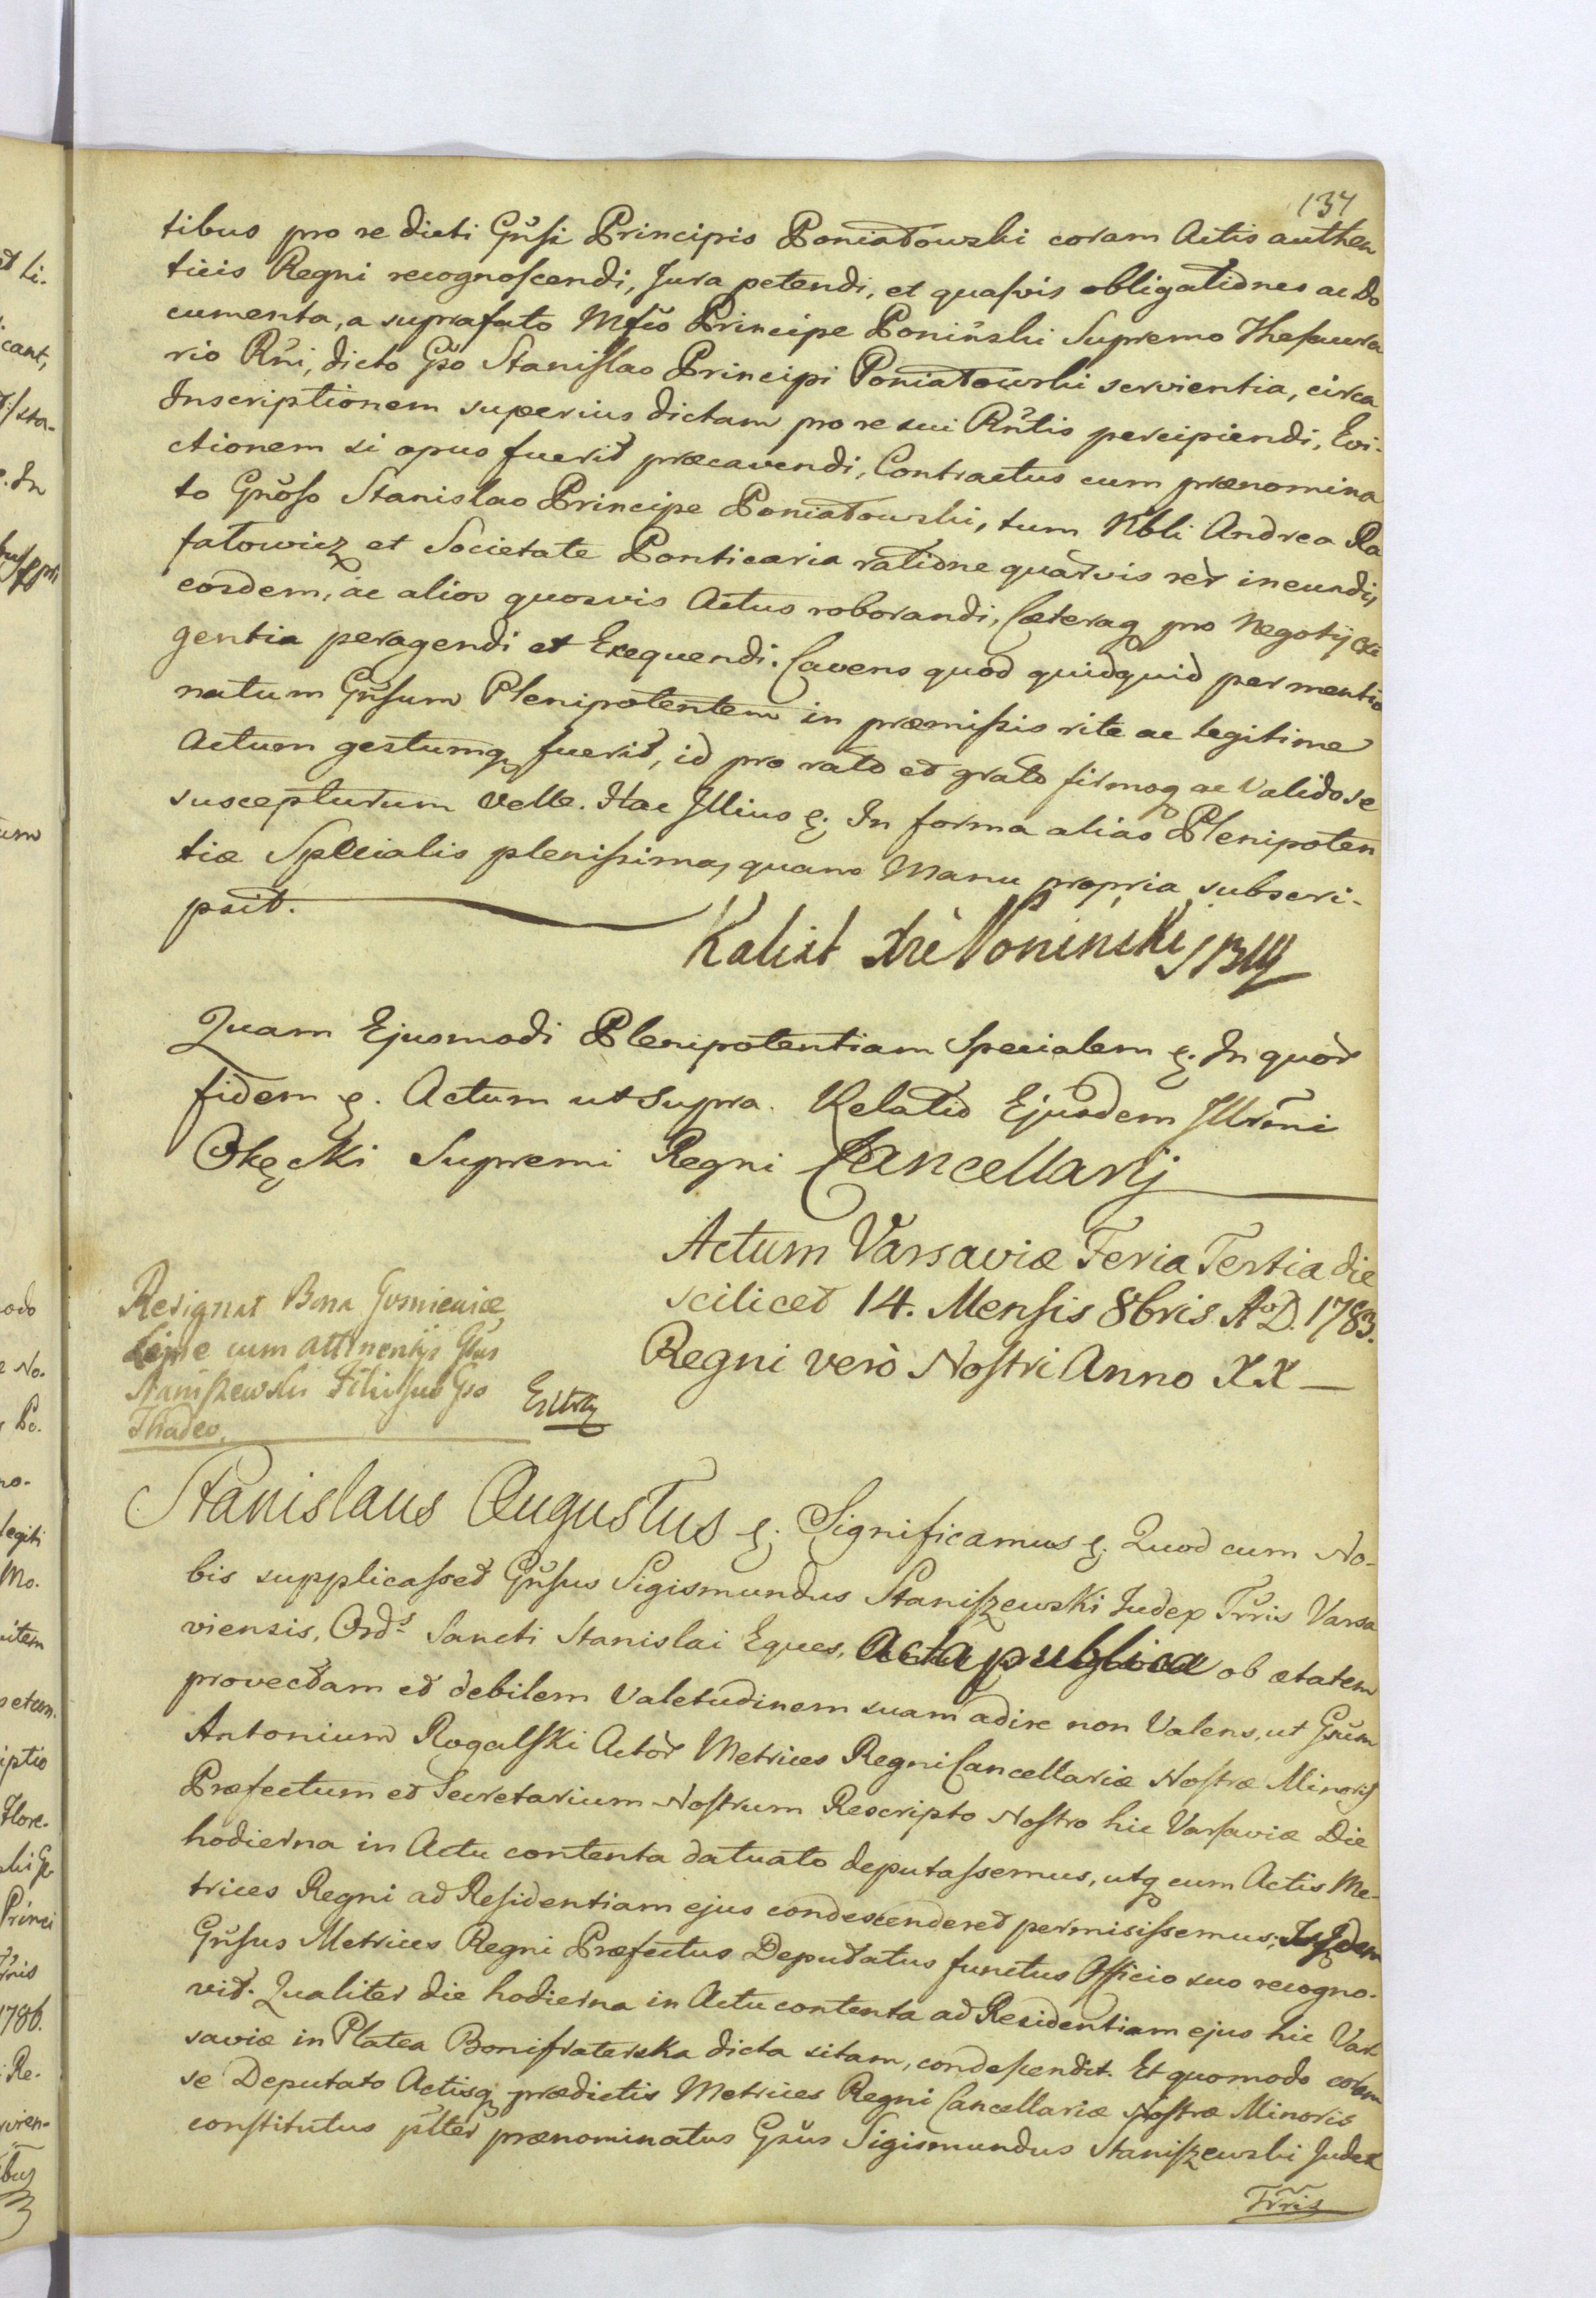 137
tibus pro re dicti Gnsi Principis Poniatowski coram Actis authen
ticis Regni recognoscendi, Jura petendi, et quasvis obligationes ac Do
cumenta, a suprafato Mfco Principe Poniński Supremo Thesaura
rio Rni, dicto Gso Stanislao Principi Poniatowski servientia, circa
Inscriptionem superius dictam pro re sui Rntis percipiendi, Evi-
ctionem si opus fuerit præcavendi, Contractus cum prænomina
to Gnoso Stanislao Principe Poniatowski, tum Nbli Andrea Ra
fałowicz et Societate Ponticaria ratione quarvis rer ineundi,
eosdem, ac alios quosvis Actus roborandi, Cæteraq pro Negotij exi
gentia peragendi et Exequendi. Cavens quod quidquid per mentio
natum Gnsum Plenipotentem in præmissis rite ac legitime
Actum gestumq fuerit, id pro rato et grato firmoq ac Valido se
suscepturum Velle. Hac Illius &. In forma alias Plenipoten
tiæ Specialis plenissima, quam Manu propria subscri-
psit.
Kalixt Xże Poninski
Quam Ejusmodi Plenipotentiam Specialem &. In quor
fidem &. Actum ut supra. Relatio Ejusdem Illrmi
Okęcki Supremi Regni Cancellarij
Actum Varsaviæ Feria Tertia die
scilicet 14. Mensis 8bris Ao D. 1783.
Regni vero Nostri Anno XX
Resignat Bona
cum attinentijs Gsus
Staniszewski Filio suo Gso
Thadeo.
Stanislaus Augustus &. Significamus &. Quod cum No-
bis supplicasset Gnsus Sigismundus Staniszewski Judex Trris Varsa
viensis, Ords Sancti Stanislai Eques, Acta publica ob ætatem
provectam et debilem Valetudinem suam adire non Valens, ut Gsum
Antonium Rogalski Actor Metrices Regni Cancellariæ Nostræ Minoris
Præfectum et Secretarium Nostrum Rescripto Nostro hic Varsaviæ Die
hodierna in Actu contenta datuato deputassemus, utq cum Actis Me-
trices Regni ad Residentiam ejus condescenderet permisissemus;
Gnsus Metrices Regni Præfectus Deputatus functus Officio suo recogno-
vit. Qualiter die hodierna in Actu contenta ad Residentiam ejus hic Var
saviæ in Platea Bonifraterska dicta sitam, condescendit. Et quomodo coram
se Deputato Actisq prædictis Metrices Regni Cancellariæ Nostræ Minoris
constitutus plter prænominatus Gsus Sigismundus Staniszewski Judex
Trris